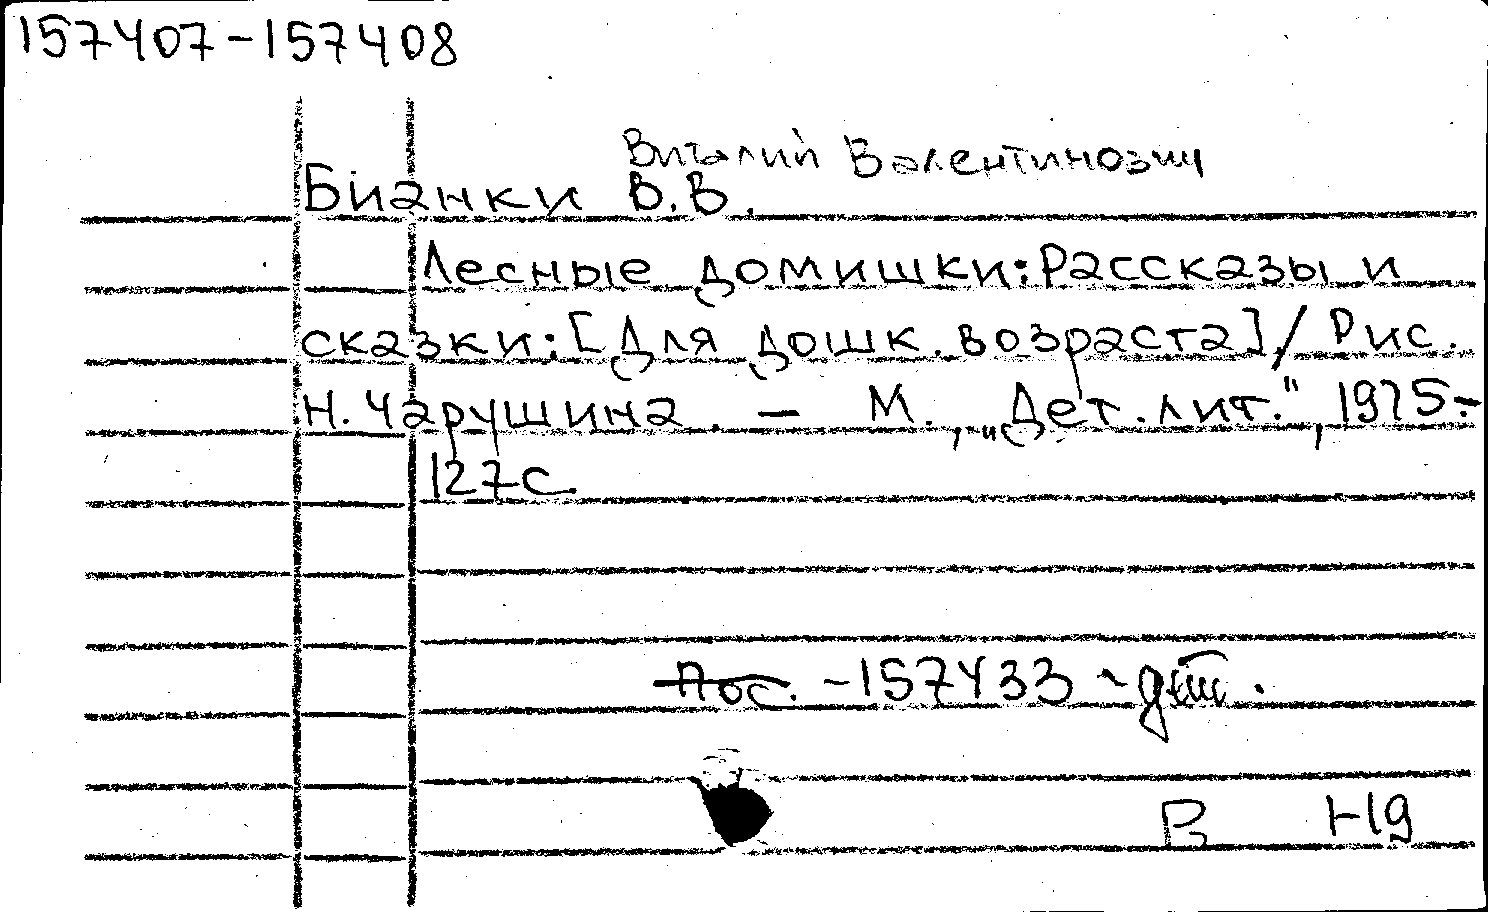 157407-157408
Виталий Валентинович
Бианки В.В.
Лесные домишки: Рассказы и
сказки: [Для дошк. возраста] / Рис.
Н. Чарушина. — М., „Дет. лит.", 1975.-
127с.
Пос. -157433 -
В Н9